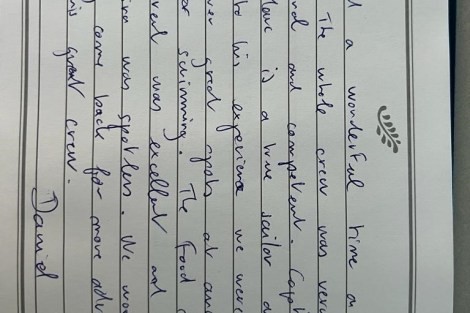 a wonderful time on
The whole crew was very
and competent. Capt
is a true sailor a
his experience we were
great spots at an
swimming. The Food
was excellent and
was spotless. We wou
come back for more adv
great crew.
Daniel